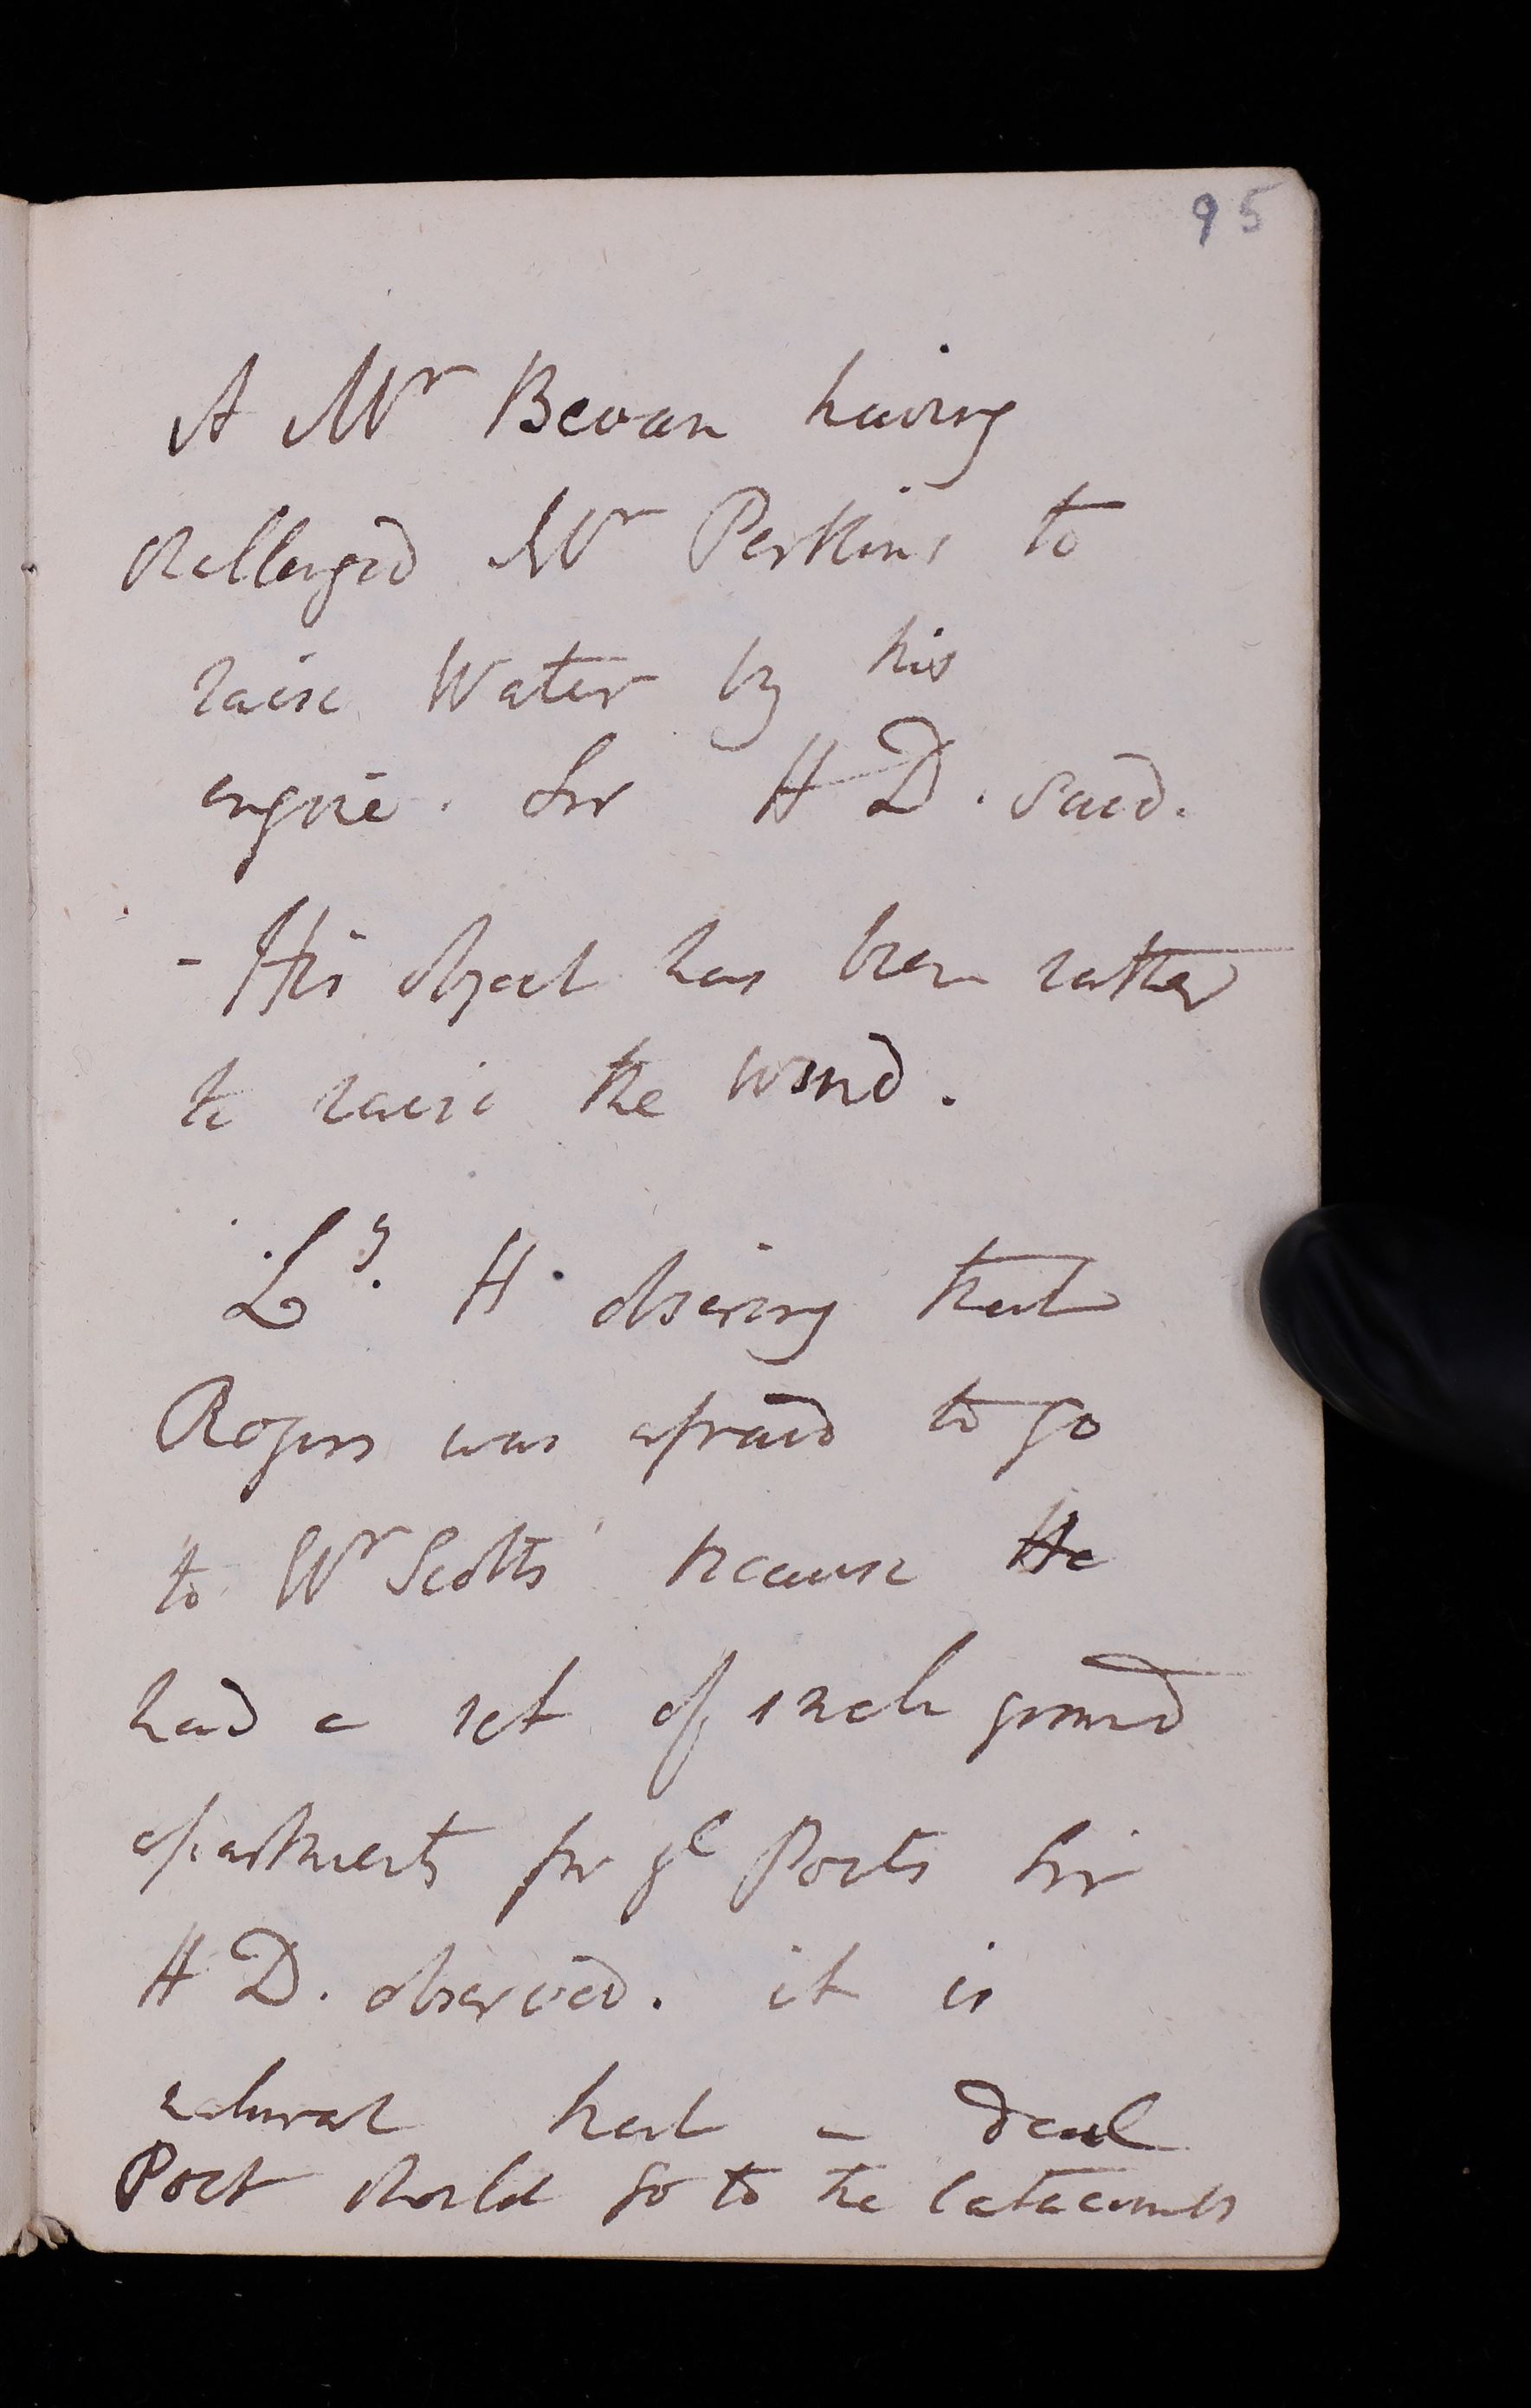 95
A Mr Bevan having
challenged Mr Perkins to
raise Water by his
engine. Sir H D. said.
- His object has been rather
to raise the wind.
Ly. H. observing that
Rogers was afraid to go
to Wr Scotts' because He
had a set of such ground
apartments for ye Poets Sir
H D. observed. it is
natural that a dead
Poet should go to the Catacombs